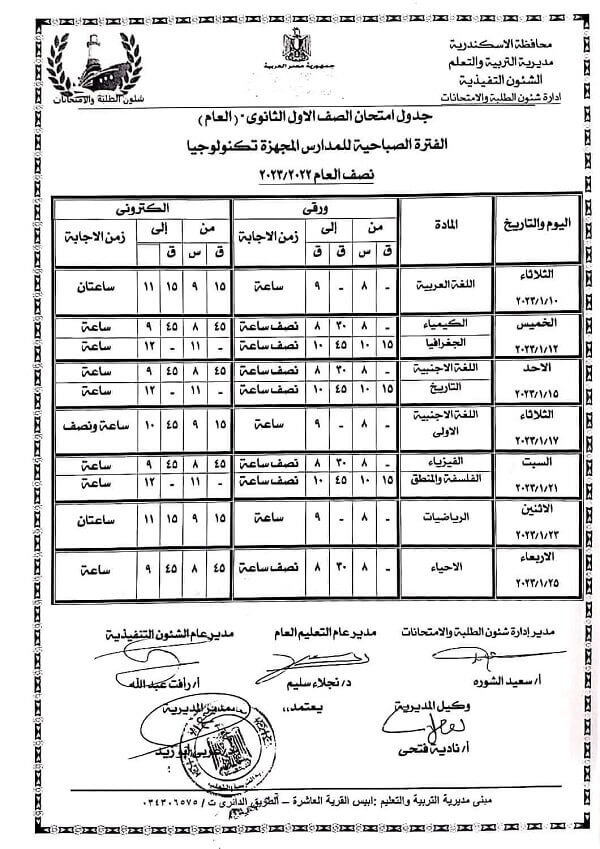 محافظة الاسكندرية
مديرية التربية والتعلم
الشئون التفيذية
ادارة شئون الطلبة والامتحانات
جمهورية مصر العربية
شئون الطلبة والامتحانات
جدول امتحان الصف الاول الثانوى - (العام)
الفترة الصباحية للمدارس المجهزة تكنولوجيا
نصف العام ٢٠٢٣/٢٠٢٢
اليوم والتاريخ المادة ورقى الكترونى
من إلى زمن الاجابة من إلى زمن الاجابة
ق س ق س ق س ق س
الثلاثاء ٢٠٢٣/١/١٠ اللغة العربية - ٨ - ٩ ساعة ١٥ ٩ ١٥ ١١ ساعتان
الخميس الكيمياء - ٨ ٣٠ ٨ نصف ساعة ٤٥ ٨ ٤٥ ٩ ساعة
٢٠٢٣/١/١٢ الجغرافيا ١٥ ١٠ ٤٥ ١٠ نصف ساعة - ١١ - ١٢ ساعة
الاحد اللغة الاجنبية - ٨ ٣٠ ٨ نصف ساعة ٤٥ ٨ ٤٥ ٩ ساعة
٢٠٢٣/١/١٥ التاريخ ١٥ ١٠ ٤٥ ١٠ نصف ساعة - ١١ - ١٢ ساعة
الثلاثاء ٢٠٢٣/١/١٧ اللغة الاجنبية الاولى - ٨ - ٩ ساعة ١٥ ٩ ٤٥ ١٠ ساعة ونصف
السبت الفيزياء - ٨ ٣٠ ٨ نصف ساعة ٤٥ ٨ ٤٥ ٩ ساعة
٢٠٢٣/١/٢١ الفلسفة والمنطق ١٥ ١٠ ٤٥ ١٠ نصف ساعة - ١١ - ١٢ ساعة
الاثنين ٢٠٢٣/١/٢٣ الرياضيات - ٨ - ٩ ساعة ١٥ ٩ ١٥ ١١ ساعتان
الاربعاء ٢٠٢٣/١/٢٥ الاحياء - ٨ ٣٠ ٨ نصف ساعة ٤٥ ٨ ٤٥ ٩ ساعة
مدير إدارة شئون الطلبة والامتحانات مدير عام التعليم العام مدير عام الشئون التنفيذية
أ/ سعيد الشوره د/ نجلاء سليم أ/ رأفت عبد الله
وكيل المديرية يعتمد،، مدير المديرية
أ/ نادية فتحى
مبنى مديرية التربية والتعليم : ابيس القرية العاشرة – الطريق الدائرى ت / ٠٣٤٣٠٦٥٧٥